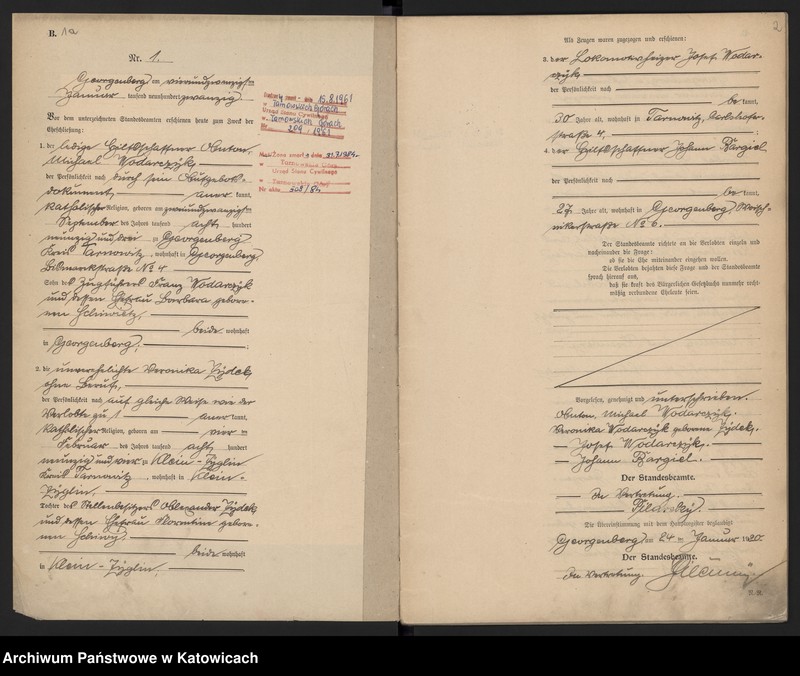 B. 1a
Nr. 1.
Georgenberg am vierundzwanzig=
Januar tausend neunhundert zwanzig
Vor dem unterzeichneten Standesbeamten erschienen heute zum Zweck der
Eheschließung:
1. der ledige Hilfsschaffner Anton,
Michael Wodarczyk
der Persönlichkeit nach durch sein Aufgebots-
dokument, aner kannt,
katholischer Religion, geboren am zweiundzwanzig=
September des Jahres tausend acht hundert
neunzig und drei zu Georgenberg
Kreis Tarnowitz, wohnhaft in Georgenberg
Bismarkstraße No 4
Sohn des Zugführers Franz Wodarczyk
und dessen Ehefrau Barbara gebore-
nen
beide wohnhaft
in Georgenberg;
2. die unverehelichte Veronika Pÿdek,
ohne Beruf,
der Persönlichkeit nach auf gleiche Weise wie der
Verlobte zu 1 aner kannt,
katholischer Religion, geboren am vier=
Februar des Jahres tausend acht hundert
neunzig und vier zu Klein-Zÿglin
Kreis Tarnowitz, wohnhaft in Klein-
Zÿglin,
Tochter des Stellenbesitzers Alexander Pÿdek
und dessen Ehefrau Florentine gebore-
nen
beide wohnhaft
in Klein-Zÿglin.
15.8.1961
w Tarnowskich Górach
Urząd Stanu Cywilnego
w Tarnowskich Górach
Nr 209/1961
Małżonek zmarł dnia
Tarnowskie Góry
Urząd Stanu Cywilnego
w Tarnowskich
Nr aktu 308/84
2
Als Zeugen waren zugezogen und erschienen:
3. der Lokomotivheizer Josef Wodar-
czyk
der Persönlichkeit nach
be kannt,
30 Jahre alt, wohnhaft in Tarnowitz,
straße 4,
4. der Hilfsschaffner Johann Bargiel
der Persönlichkeit nach
be kannt,
27 Jahre alt, wohnhaft in Georgenberg, Woisch-
nikerstraße No 6.
Der Standesbeamte richtete an die Verlobten einzeln und
nacheinander die Frage:
ob sie die Ehe miteinander eingehen wollen.
Die Verlobten bejahten diese Frage und der Standesbeamte
sprach hierauf aus,
daß sie kraft des Bürgerlichen Gesetzbuchs nunmehr recht-
mäßig verbundene Eheleute seien.
Vorgelesen, genehmigt und unterschrieben.
Anton, Michael Wodarczyk.
Veronika Wodarczyk geborene Pÿdek.
Josef Wodarczyk.
Johann Bargiel.
Der Standesbeamte.
In Vertretung.
Pilarskÿ.
Die Übereinstimmung mit dem Hauptregister beglaubigt
Georgenberg, am 24 ten Januar 1920.
Der Standesbeamte.
In Vertretung
Archiwum Państwowe w Katowicach